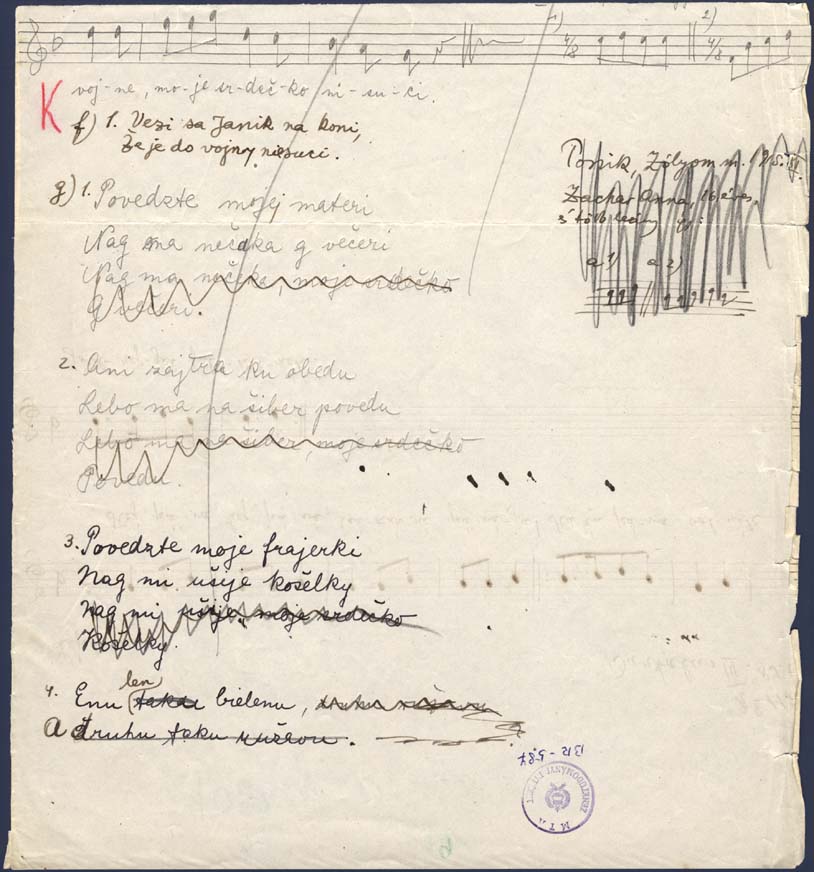 1) 2)
4/8 4/8
voj-ne, mo-je sr-deč-ko ni-su-ci.
K
f) 1. Vezi sa Janik na koni,
Že je do vojny nesuci.
Ponik, Zólyom m. 1915. II.
Zachar Anna, 16 éves,
s több leány
a 1) a 2)
g) 1. Povedzte mojej materi
Nag ma nečaka g večeri
Nag ma nečaka, moje srdečko
G večeri.
2. Ani zajtra ku obedu
Lebo ma na šiber povedu
Lebo ma na šiber, moje srdečko
Povedu.
3. Povedzte moje frajerki
Nag mi ušije košelky
Nag mi ušije, moje srdečko
Košelky.
len
4. Enu taku bielenu,
A druhu taku ružovu.
BR-587
M T A